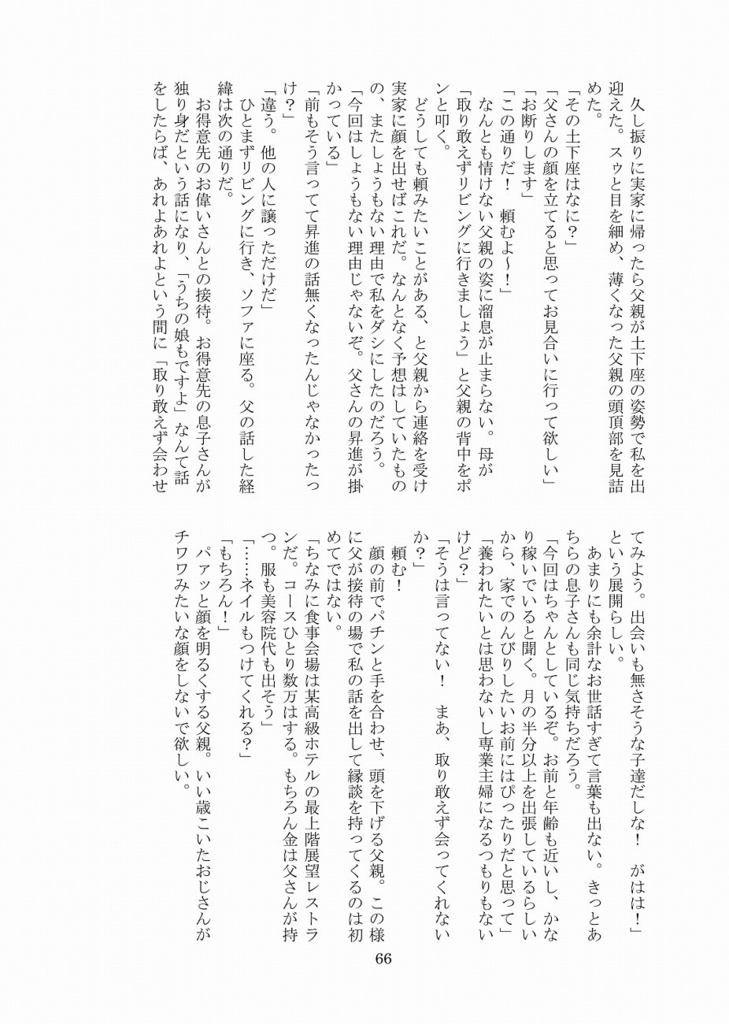 久し振りに実家に帰ったら父親が土下座の姿勢で私を出
迎えた。スゥと目を細め、薄くなった父親の頭頂部を見詰
めた。
「その土下座はなに？」
「父さんの顔を立てると思ってお見合いに行って欲しい」
「お断りします」
「この通りだ！　頼むよ〜！」
なんとも情けない父親の姿に溜息が止まらない。母が
「取り敢えずリビングに行きましょう」と父親の背中をポ
ンと叩く。
どうしても頼みたいことがある、と父親から連絡を受け
実家に顔を出せばこれだ。なんとなく予想はしていたもの
の、またしょうもない理由で私をダシにしたのだろう。
「今回はしょうもない理由じゃないぞ。父さんの昇進が掛
かっている」
「前もそう言ってて昇進の話無くなったんじゃなかったっ
け？」
「違う。他の人に譲っただけだ」
ひとまずリビングに行き、ソファに座る。父の話した経
緯は次の通りだ。
お得意先のお偉いさんとの接待。お得意先の息子さんが
独り身だという話になり、「うちの娘もですよ」なんて話
をしたらば、あれよあれよという間に「取り敢えず会わせ
てみよう。出会いも無さそうな子達だしな！　がはは！」
という展開らしい。
あまりにも余計なお世話すぎて言葉も出ない。きっとあ
ちらの息子さんも同じ気持ちだろう。
「今回はちゃんとしているぞ。お前と年齢も近いし、かな
り稼いでいると聞く。月の半分以上を出張しているらしい
から、家でのんびりしたいお前にはぴったりだと思って」
「養われたいとは思わないし専業主婦になるつもりもない
けど？」
「そうは言ってない！　まあ、取り敢えず会ってくれない
か？」
頼む！
顔の前でパチンと手を合わせ、頭を下げる父親。この様
に父が接待の場で私の話を出して縁談を持ってくるのは初
めてではない。
「ちなみに食事会場は某高級ホテルの最上階展望レストラ
ンだ。コースひとり数万はする。もちろん金は父さんが持
つ。服も美容院代も出そう」
「……ネイルもつけてくれる？」
「もちろん！」
パァッと顔を明るくする父親。いい歳こいたおじさんが
チワワみたいな顔をしないで欲しい。
66